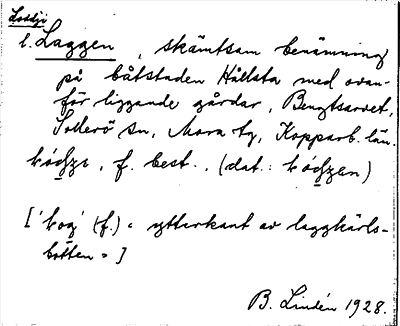 Loddji
l. Laggen, skämtsam benämning
på båtstaden Hållsta med ovan-
för liggande gårdar, Bengtsarvet,
Sollerö sn, Mora tg, Kopparb. län.
f. best., (dat.:
[ 'log' (f.) = ytterkant av laggkärls-
botten = ]
B. Lindén 1928.